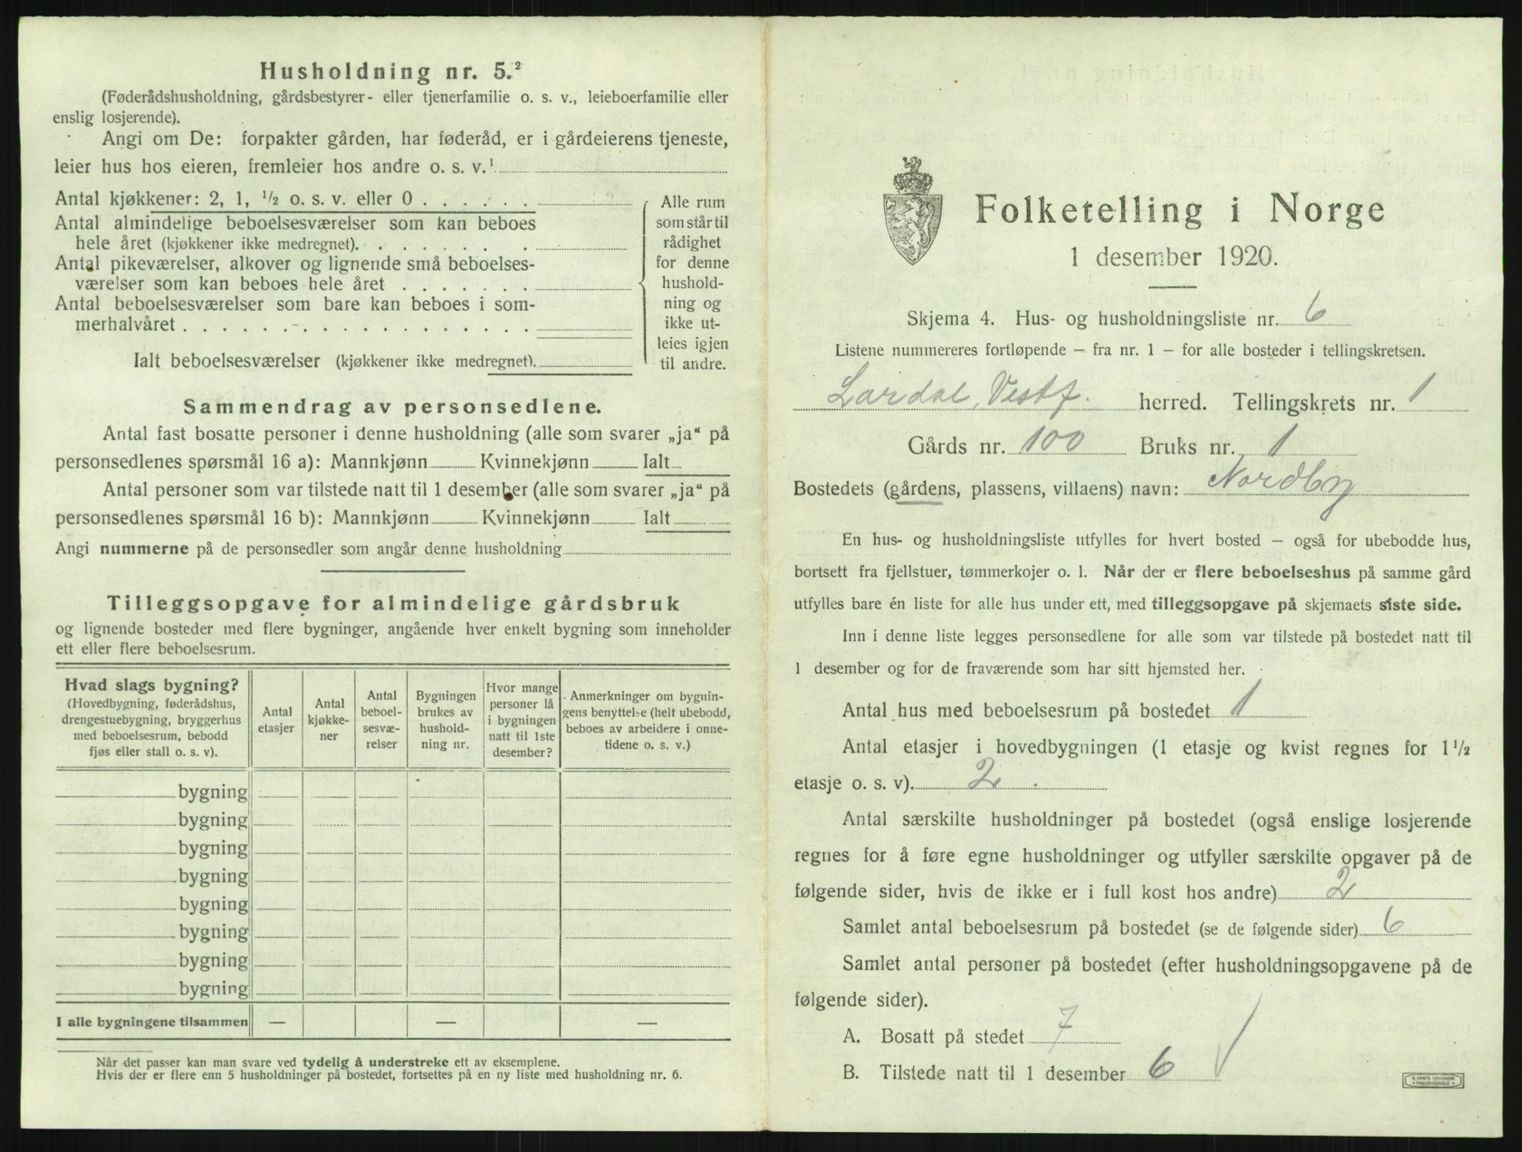 Husholdning nr. 5.²
(Føderådshusholdning, gårdsbestyrer- eller tjenerfamilie o. s. v., leieboerfamilie eller
enslig losjerende).
Angi om De: forpakter gården, har føderåd, er i gårdeierens tjeneste,
leier hus hos eieren, fremleier hos andre o. s. v.¹
Antal kjøkkener: 2, 1, ½ o. s. v. eller 0 . . . . . .
Antal almindelige beboelsesværelser som kan beboes
hele året (kjøkkener ikke medregnet). . . . . . . . .
Antal pikeværelser, alkover og lignende små beboelses-
værelser som kan beboes hele året . . . . . . .
Antal beboelsesværelser som bare kan beboes i som-
merhalvåret . . . . . . . . . . . . . . . . . .
Ialt beboelsesværelser (kjøkkener ikke medregnet).
Alle rum
som står til
rådighet
for denne
hushold-
ning og
ikke ut-
leies igjen
til andre.
Sammendrag av personsedlene.
Antal fast bosatte personer i denne husholdning (alle som svarer „ja“ på
personsedlenes spørsmål 16 a): Mannkjønn Kvinnekjønn Ialt
Antal personer som var tilstede natt til 1 desember (alle som svarer „ja“ på
personsedlenes spørsmål 16 b): Mannkjønn Kvinnekjønn Ialt
Angi nummerne på de personsedler som angår denne husholdning
Tilleggsopgave for almindelige gårdsbruk
og lignende bosteder med flere bygninger, angående hver enkelt bygning som inneholder
ett eller flere beboelsesrum.
Hvad slags bygning?
(Hovedbygning, føderådshus,
drengestuebygning, bryggerhus
med beboelsesrum, bebodd
fjøs eller stall o. s. v).
Antal
etasjer
Antal
kjøkke-
ner
Antal
beboel-
sesvæ-
relser
Bygningen
brukes av
hushold-
ning nr.
Hvor mange
personer lå
i bygningen
natt til 1ste
desember?
Anmerkninger om bygnin-
gens benyttelse (helt ubebodd,
beboes av arbeidere i onne-
tidene o. s. v.)
bygning
bygning
bygning
bygning
bygning
bygning
bygning
bygning
I alle bygningene tilsammen — — —
Når det passer kan man svare ved tydelig å understreke ett av eksemplene.
Hvis der er flere enn 5 husholdninger på bostedet, fortsettes på en ny liste med husholdning nr. 6.
Folketelling i Norge
1 desember 1920.
Skjema 4. Hus- og husholdningsliste nr. 6
Listene nummereres fortløpende – fra nr. 1 – for alle bosteder i tellingskretsen.
Lardal, Vestf. herred. Tellingskrets nr. 1
Gårds nr. 100 Bruks nr. 1
Bostedets (gårdens, plassens, villaens) navn: Nordby
En hus- og husholdningsliste utfylles for hvert bosted – også for ubebodde hus,
bortsett fra fjellstuer, tømmerkojer o. l. Når der er flere beboelseshus på samme gård
utfylles bare én liste for alle hus under ett, med tilleggsopgave på skjemaets siste side.
Inn i denne liste legges personsedlene for alle som var tilstede på bostedet natt til
1 desember og for de fraværende som har sitt hjemsted her.
Antal hus med beboelsesrum på bostedet 1
Antal etasjer i hovedbygningen (1 etasje og kvist regnes for 1½
etasje o. s. v). 2
Antal særskilte husholdninger på bostedet (også enslige losjerende
regnes for å føre egne husholdninger og utfyller særskilte opgaver på de
følgende sider, hvis de ikke er i full kost hos andre) 2
Samlet antal beboelsesrum på bostedet (se de følgende sider) 6
Samlet antal personer på bostedet (efter husholdningsopgavene på de
følgende sider).
A. Bosatt på stedet 7
B. Tilstede natt til 1 desember 6